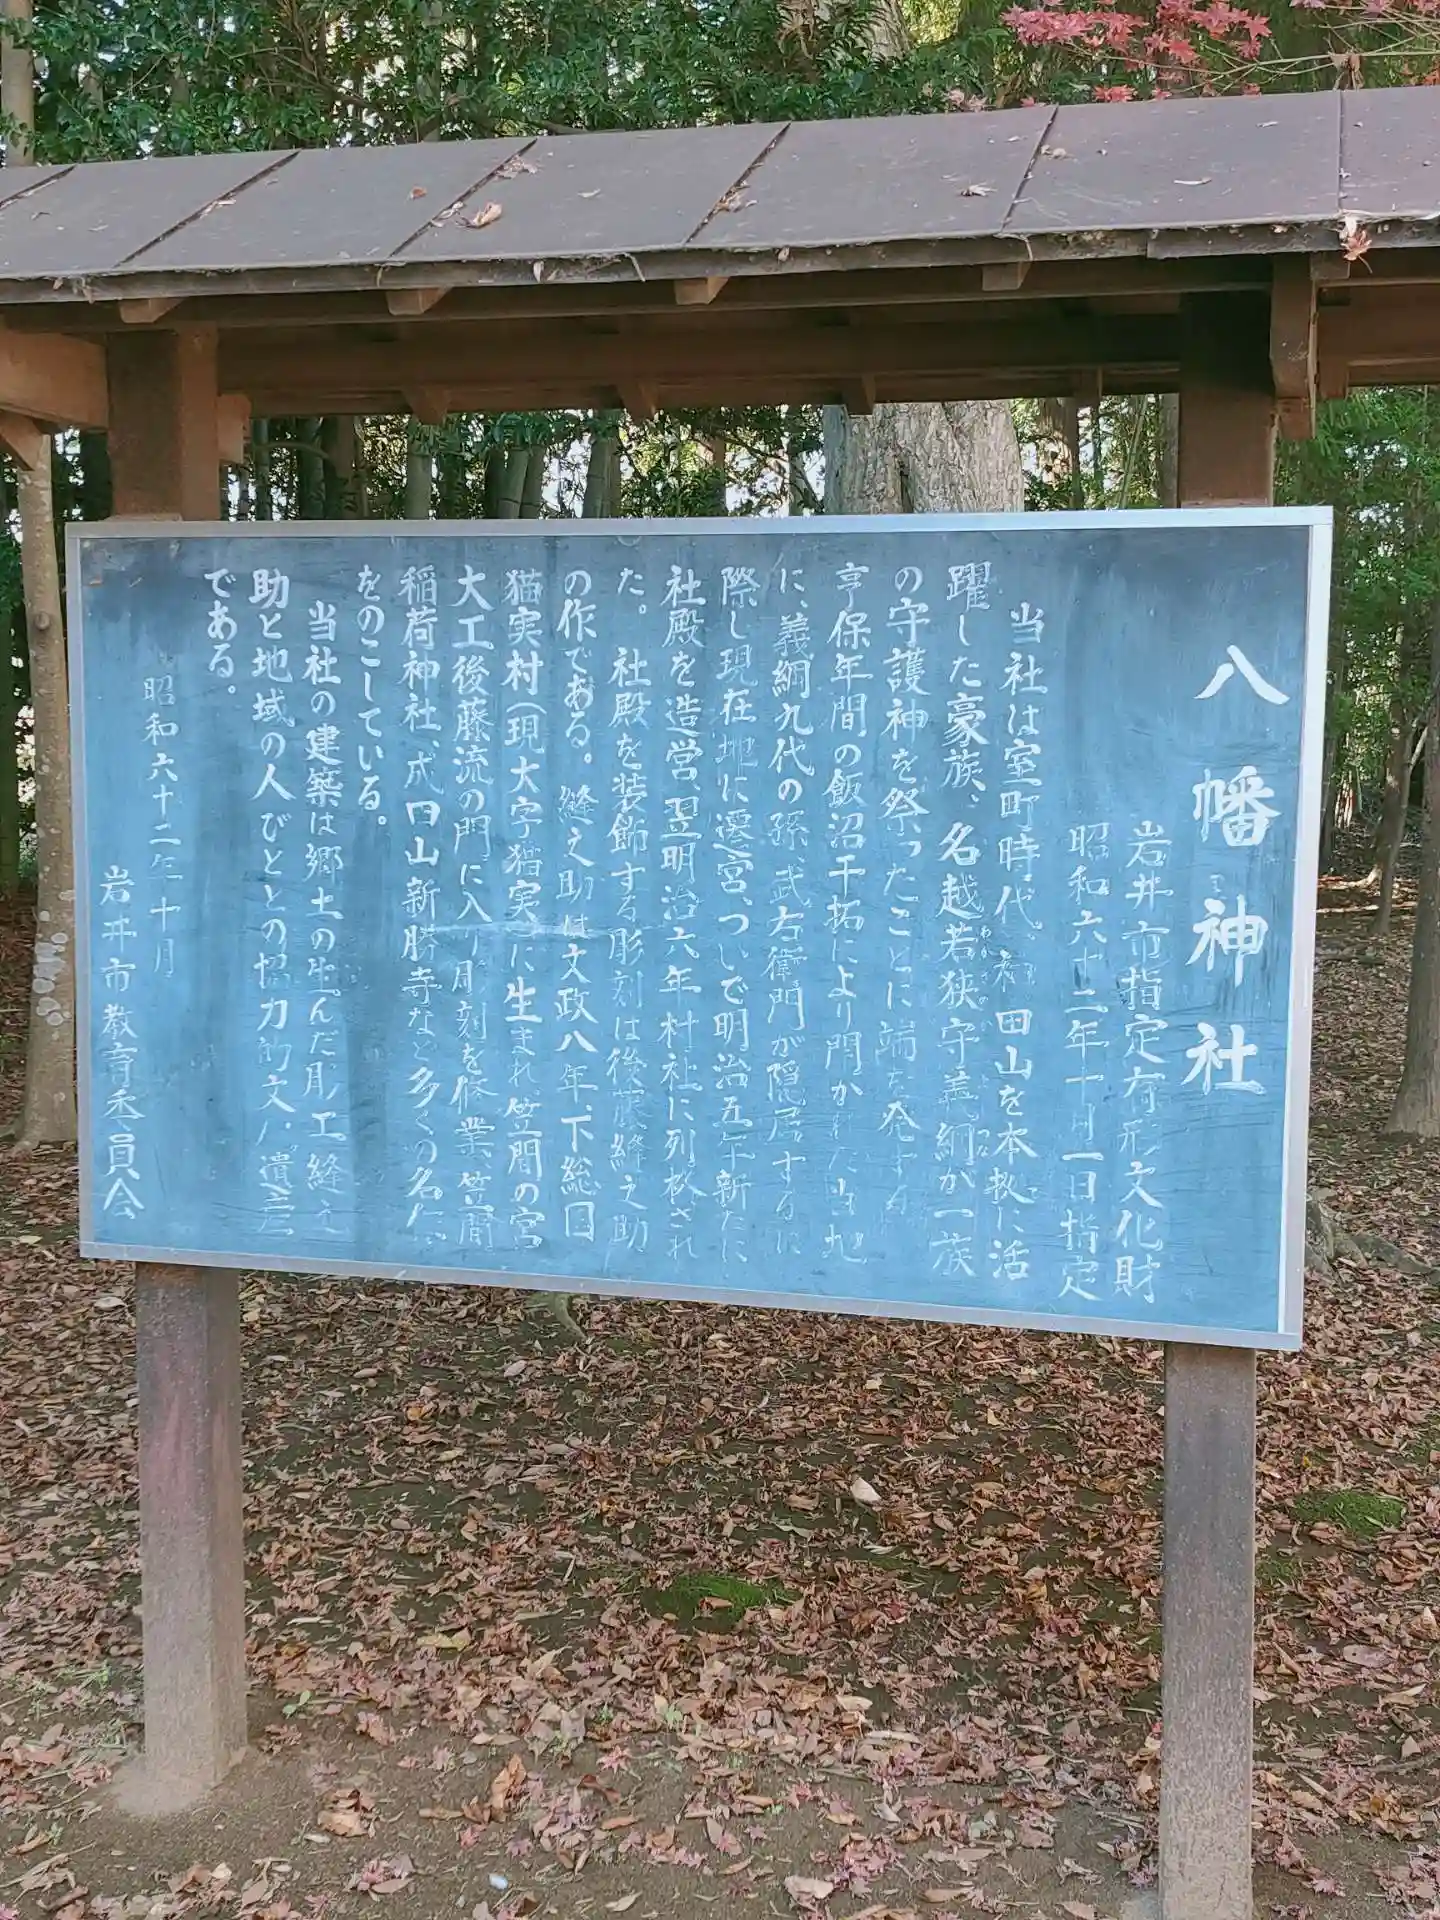 八幡神社
岩井市指定有形文化財
昭和六十二年十月一日指定
当社は室町時代、神田山を本拠に活
躍した豪族、名越若狭守義綱が一族
の守護神を祭ったことに端を発する
享保年間の飯沼干拓により開かれた当地
に、義綱九代の孫、武右衛門が隠居するに
際し現在地に遷宮、ついで明治五年新たに
社殿を造営、翌明治六年村社に列格され
た。 社殿を装飾する彫刻は後藤縫之助
の作である。縫之助は文政八年、下総国
猫実村(現大字猫実)に生まれ、笠間の宮
大工後藤流の門に入り彫刻を修業、笠間
稲荷神社、成田山新勝寺など多くの名作
をのこしている。
当社の建築は郷土の生んだ彫工縫之
助と地域の人びととの協力的文化遺産
である。
昭和六十二年十月
岩井市教育委員会